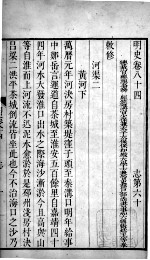 明史卷八十四
志第六十
敕修
河渠二
黃河下
萬曆元年河決房村築堤窪子頭至秦溝口明年給事
中鄭岳言運道自茶城至淮安五百餘里自嘉靖四十
四年河水大發淮口出水之際海沙漸淤今且高與山
等自淮而上河流不迅泥水愈淤於是邳州淺房村決
呂梁二洪平茶城倒流皆坐此也今不治海口之沙乃